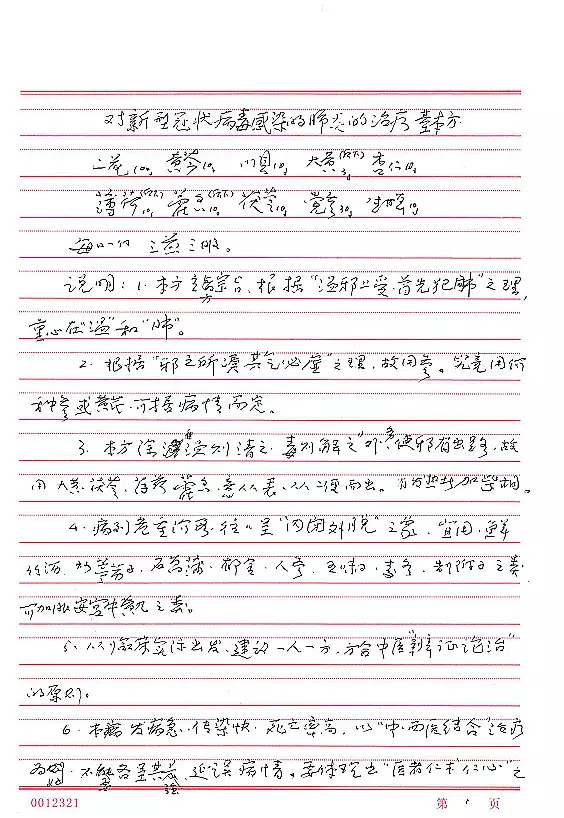 对新型冠状病毒感染的肺炎的治疗基本方
二花10g 黄芩10g 川贝10g 大黄(后下)3g 杏仁10g
薄荷(后下)10g 藿香(后下)10g 茯苓10g 党参30g 生 10g
每日一付 三煎三服。
说明:1. 本方 根据"温邪上受,首先犯肺"之理,
重心在"温"和"肺"。
2. 根据"邪之所凑其气必虚"之理,故用参。究竟用何
种参或黄芪,可据病情而定。
3. 本方除温则清之、毒则解之外,使邪有出路,故
用大黄、茯苓、薄荷、藿香,意从表、从二便而出。
4. 病到危重阶段,往往呈"内闭外脱"之象,宜用鲜
竹沥、 石菖蒲、郁金、人参、五味子、麦冬、制附子之类
可加服安宫牛黄丸之类。
5. 从临床实际出发,建议一人一方,方合中医"辨证论治"
的原则。
6. 本病发病急、传染快、死亡率高,以"中西医结合"治疗
为 ,不能各呈其 ,延误病情。要体现出"医者仁术仁心"之
0012321
第 1 页